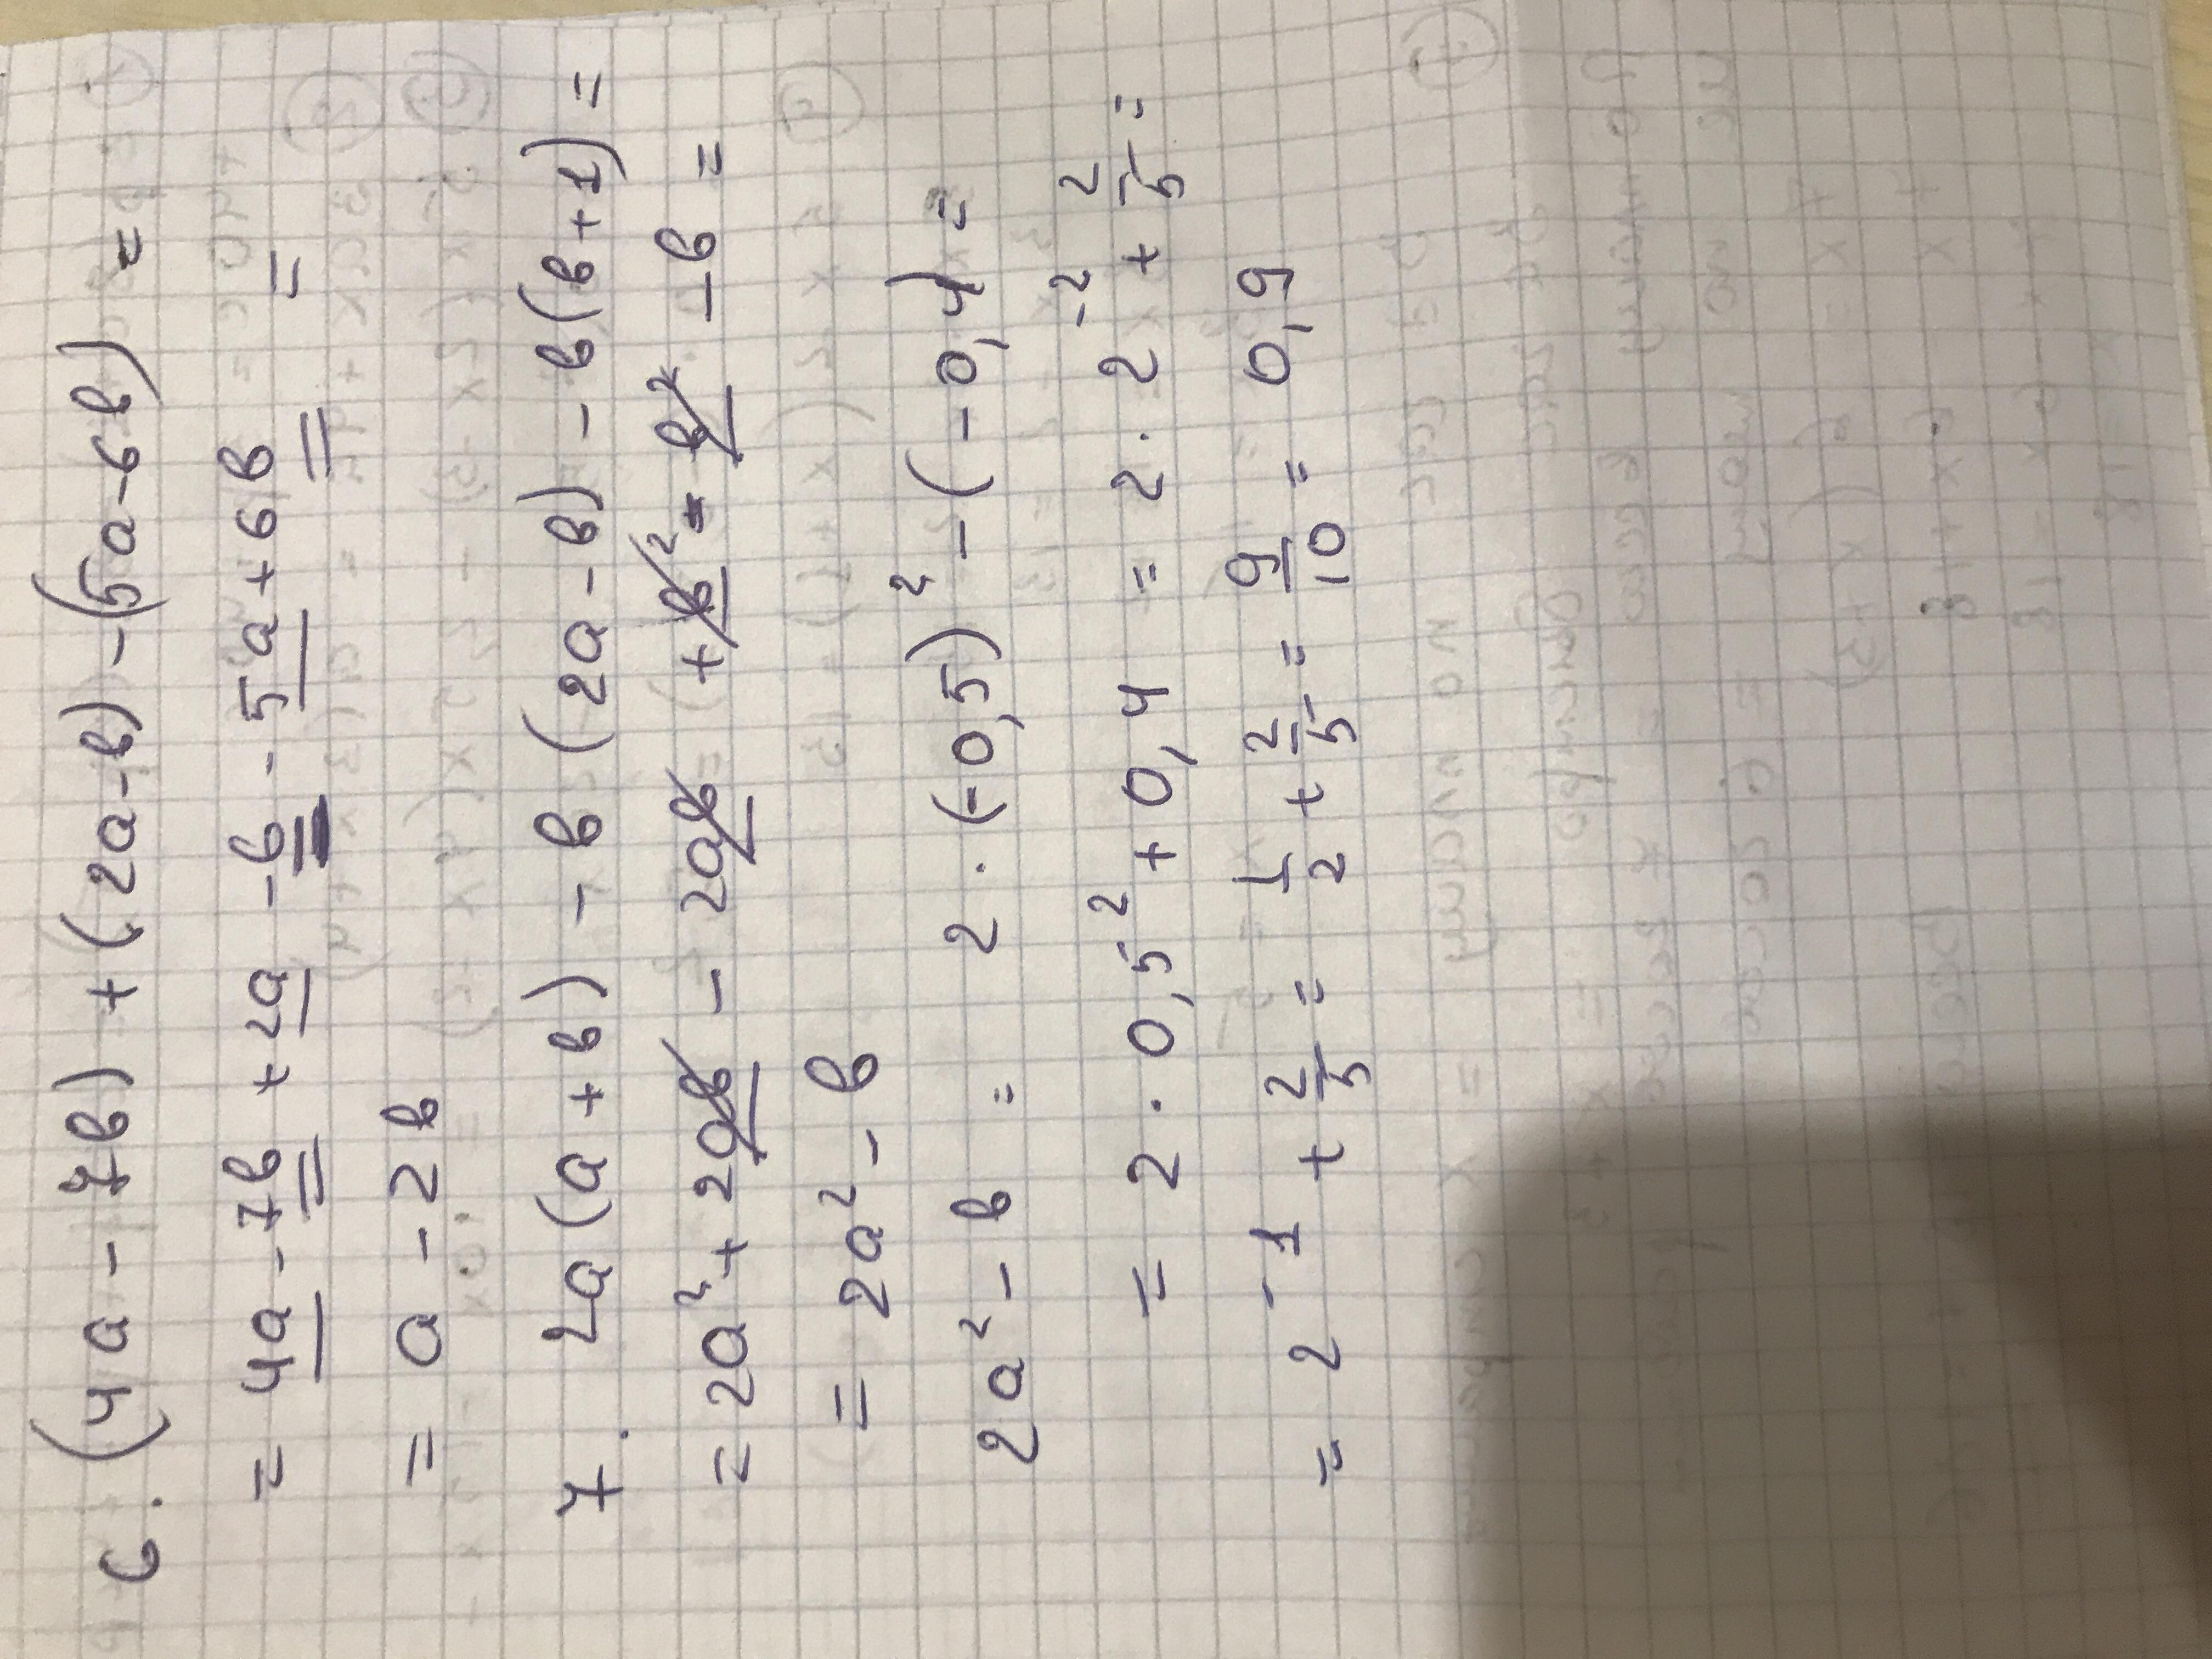 6. (4a - 7b) + (2a - b) - (5a - 6b) =
= 4a - 7b + 2a - b - 5a + 6b =
= a - 2b
7. 2a(a + b) - b(2a - b) - b(b + 1) =
= 2a² + 2ab - 2ab + b² - b² - b =
= 2a² - b
2a² - b = 2 · (-0,5)² - (-0,4) =
= 2 · 0,5² + 0,4 = 2 · 2⁻² + 2/5 =
= 2⁻¹ + 2/5 = 1/2 + 2/5 = 9/10 = 0,9